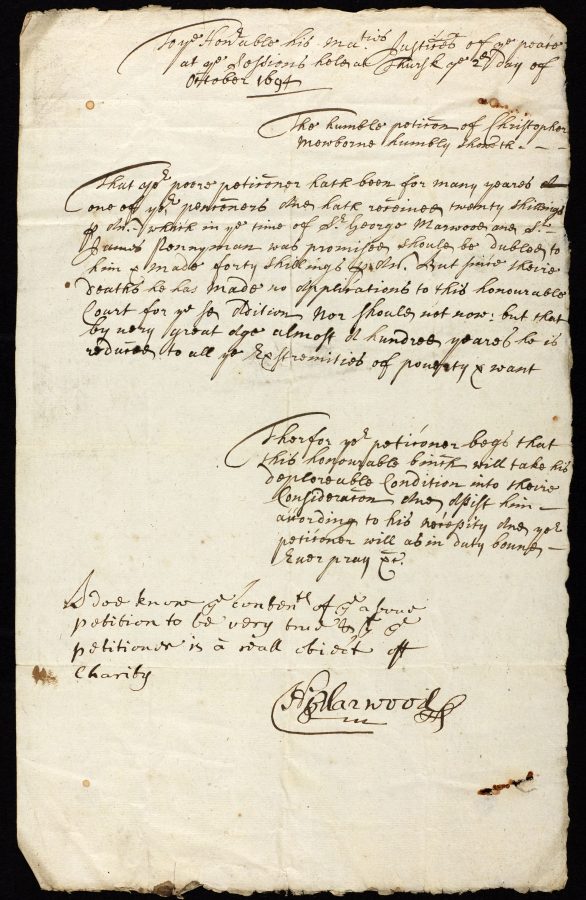 To ye Honrable his Maties Justices of ye peace
at ye Sessions held at Thursk ye 2d day of
October 1694
The humble peticon of Christopher
Mewborne humbly sheweth - - -
That yor poore peticoner hath been for many yeares
one of yor pencorners and hath receined twenty shillings
p An: which in ye time of Sr George Marwood and Sr
James Pennyman was promised should be dubled to
him & made forty shillings p An. But sine theire
deaths he has made no Applications to this honourable
Court for ye sd Adition nor should not now: but that
by very great Age almost A hundred yeares he is
reduced to all ye Exstremities of poverty & want
Therfor yor peticoner begs that
this honourable binch will take his
deploreable Condition into theire
Consideraton And Assist him -
according to his necessity And yor
peticoner will as in duty bound -
Ever pray &c.
I doe know ye Contents of ye above
petition to be very true & yt ye
petitioner is a reall object off
Charity
H Marwood